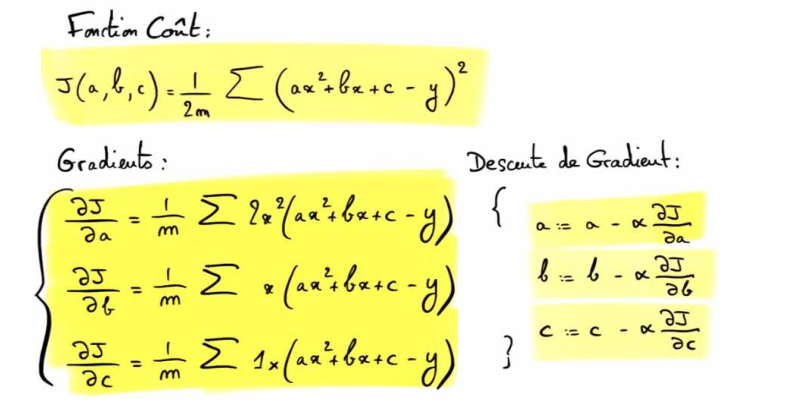 Fonction Coût :
J(a,b,c) = 1/2m ∑ (ax²+bx+c - y)²
Gradients :
∂J/∂a = 1/m ∑ 2x²(ax²+bx+c - y)
∂J/∂b = 1/m ∑ x(ax²+bx+c - y)
∂J/∂c = 1/m ∑ 1x(ax²+bx+c - y)
Descente de Gradient :
{
a := a - α ∂J/∂a
b := b - α ∂J/∂b
c := c - α ∂J/∂c
}